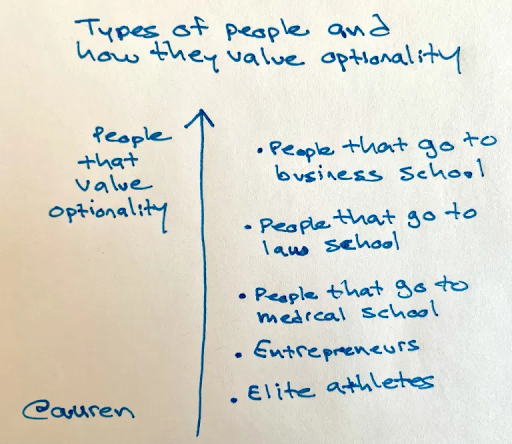 Types of people and
how they value optionality
People
that
value
optionality
• People that go to
business school
• People that go to
law school
• People that go to
medical school
• Entrepreneurs
• Elite athletes
@auren